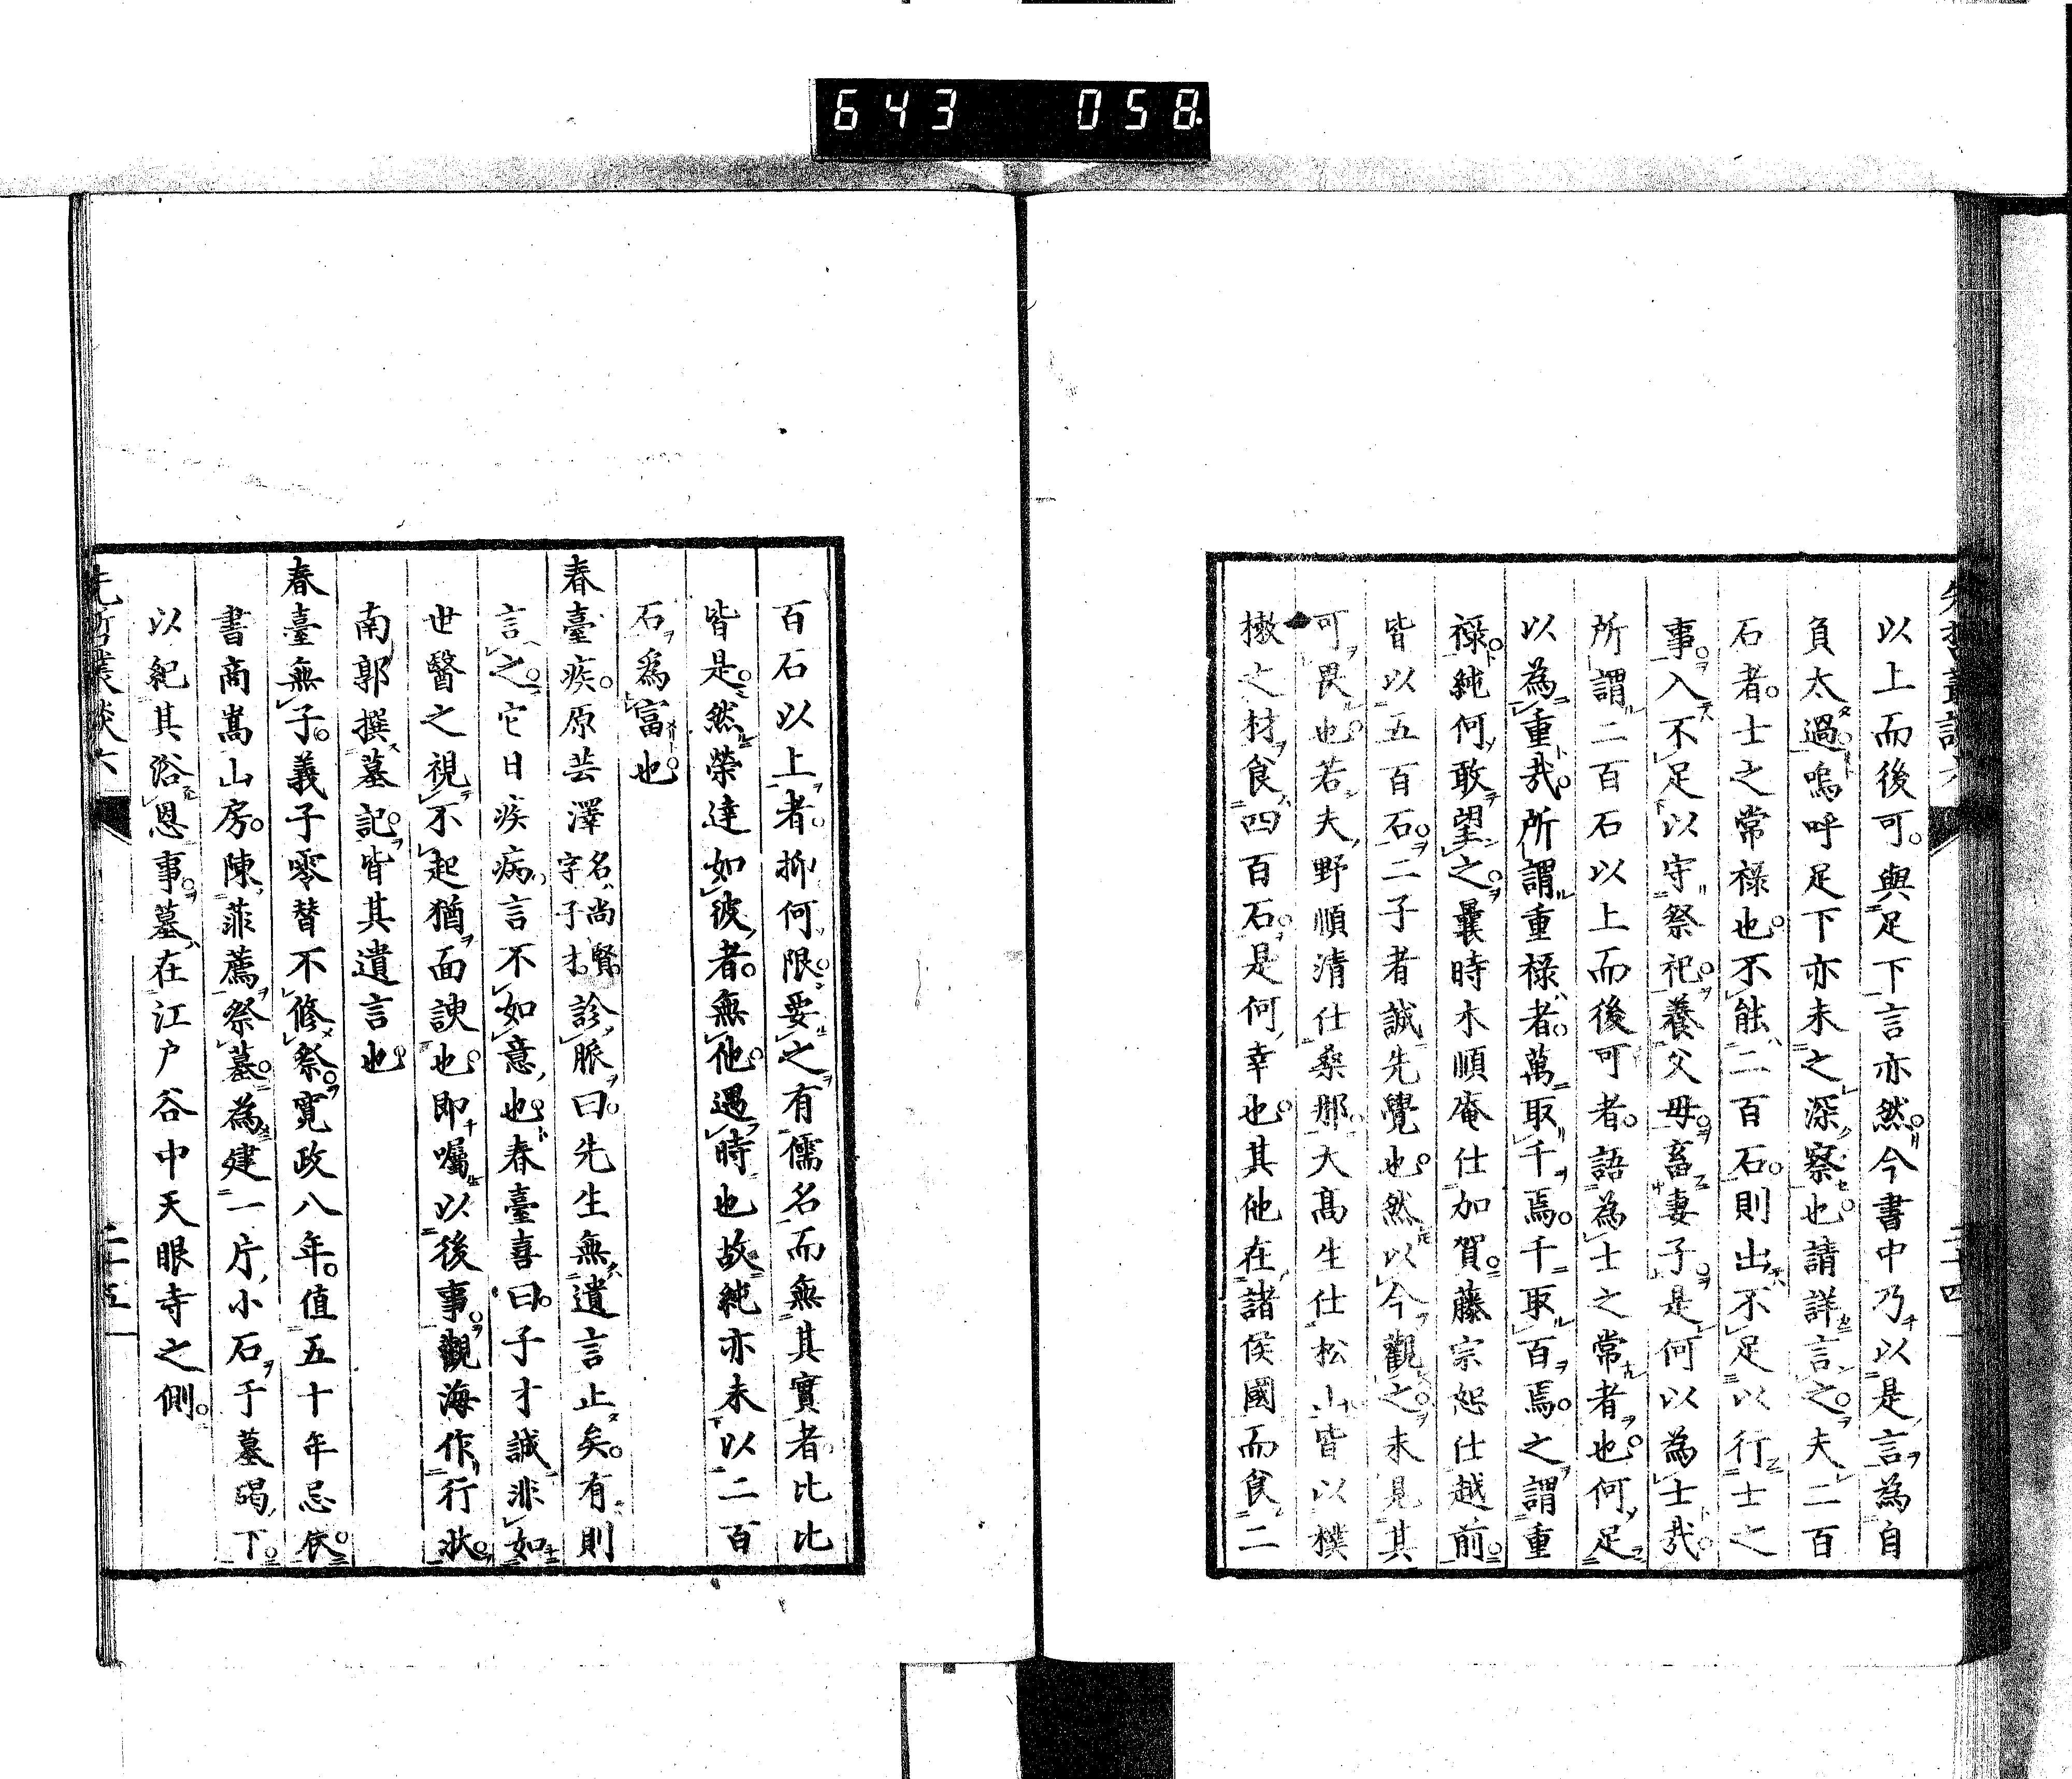 643 058
先哲叢談六 二十四
以上而後可。與足下言亦然。今書中乃以是言為自
負太過。嗚呼足下亦未之深察也。請詳言之。夫二百
石者。士之常祿也。不能二百石。則出不足以行士之
事。入不足以守祭祀。養父母。畜妻子。是何以為士哉。
所謂二百石以上而後可者。語為士之常者也。何足
以為重哉。所謂重祿者。萬取千焉。千取百焉。之謂重
祿。純何敢望之。曩時木順庵仕加賀。藤宗恕仕越前。
皆以五百石。二子者誠先覺也。然以今觀之。未見其
可畏也。若夫野順清仕桑那。大高生仕松山。皆以樸
樕之材。食四百石。是何幸也。其他在諸侯國而食二
百石以上者。抑何限。要之有儒名而無其實者比比
皆是。然榮達如彼者。無他。遇時也。故純亦未以二百
石為富也。
春臺疾。原芸澤名尚賢。字子才。診脈曰。先生無遺言止矣。有則
言之。它日疾病。言不如意也。春臺喜曰。子才誠非如
世醫之視不起猶面諛也。即囑以後事。觀海作行狀。
南郭撰墓記。皆其遺言也。
春臺無子。義子零替不修祭。寬政八年。值五十年忌。依
書商嵩山房。陳菲薦祭墓。為建一片小石于墓碣下。
以紀其浴恩事。墓在江戶谷中天眼寺之側。
先哲叢談六 二十五